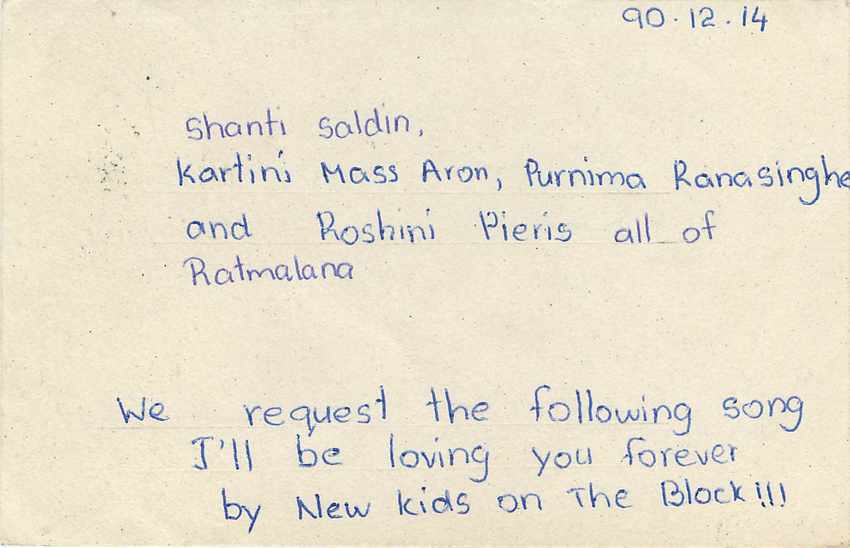 90.12.14
Shanti Saldin,
Kartini Mass Aron, Purnima Ranasinghe
and Roshini Pieris all of
Ratmalana
We request the following song
I'll be loving you forever
by New kids on The Block!!!